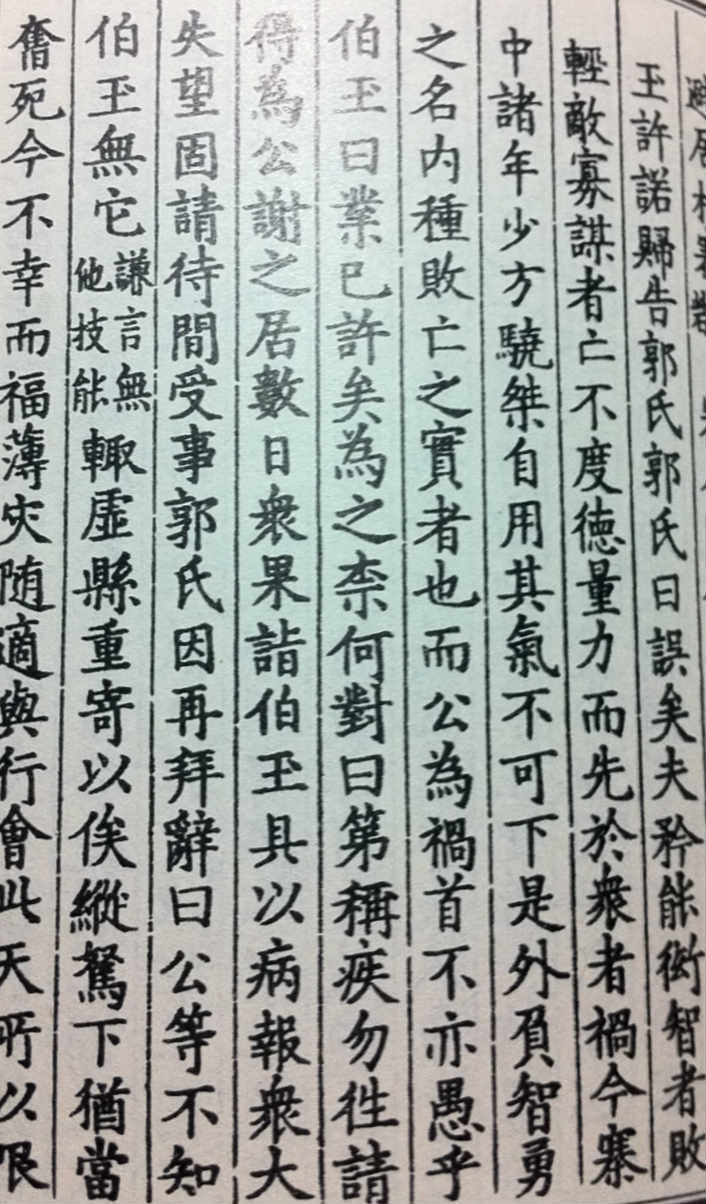 玉許諾歸告郭氏郭氏曰誤矣夫矜能衒智者敗
輕敵寡謀者亡不度德量力而先於衆者禍今寨
中諸年少方驍桀自用其氣不可下是外負智勇
之名内種敗亡之實者也而公為禍首不亦愚乎
伯玉曰業已許矣為之柰何對曰第稱疾勿徃請
得為公謝之居數日衆果詣伯玉具以病報衆大
失望固請待間受事郭氏因再拜辭曰公等不知
伯玉無它謙言無他技能輙虛縣重寄以俟縱駑下猶當
奮死今不幸而福薄灾随適與行會此天所以限